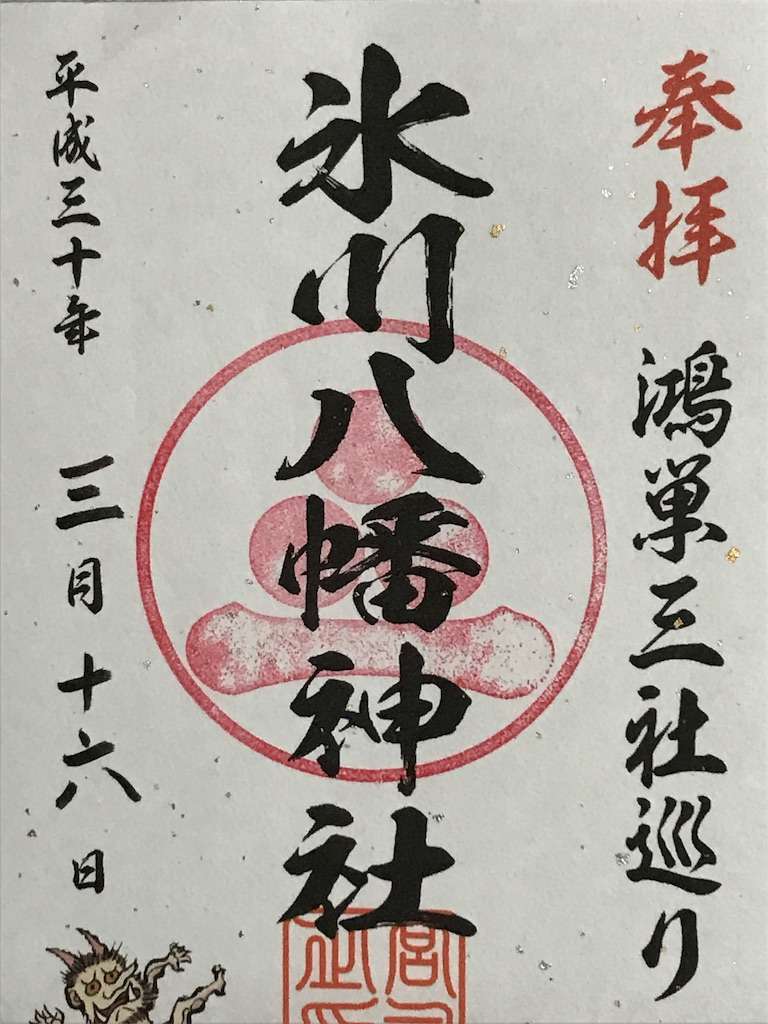 奉拝
鴻巣三社巡り
氷川八幡神社
平成三十年 三月十六日